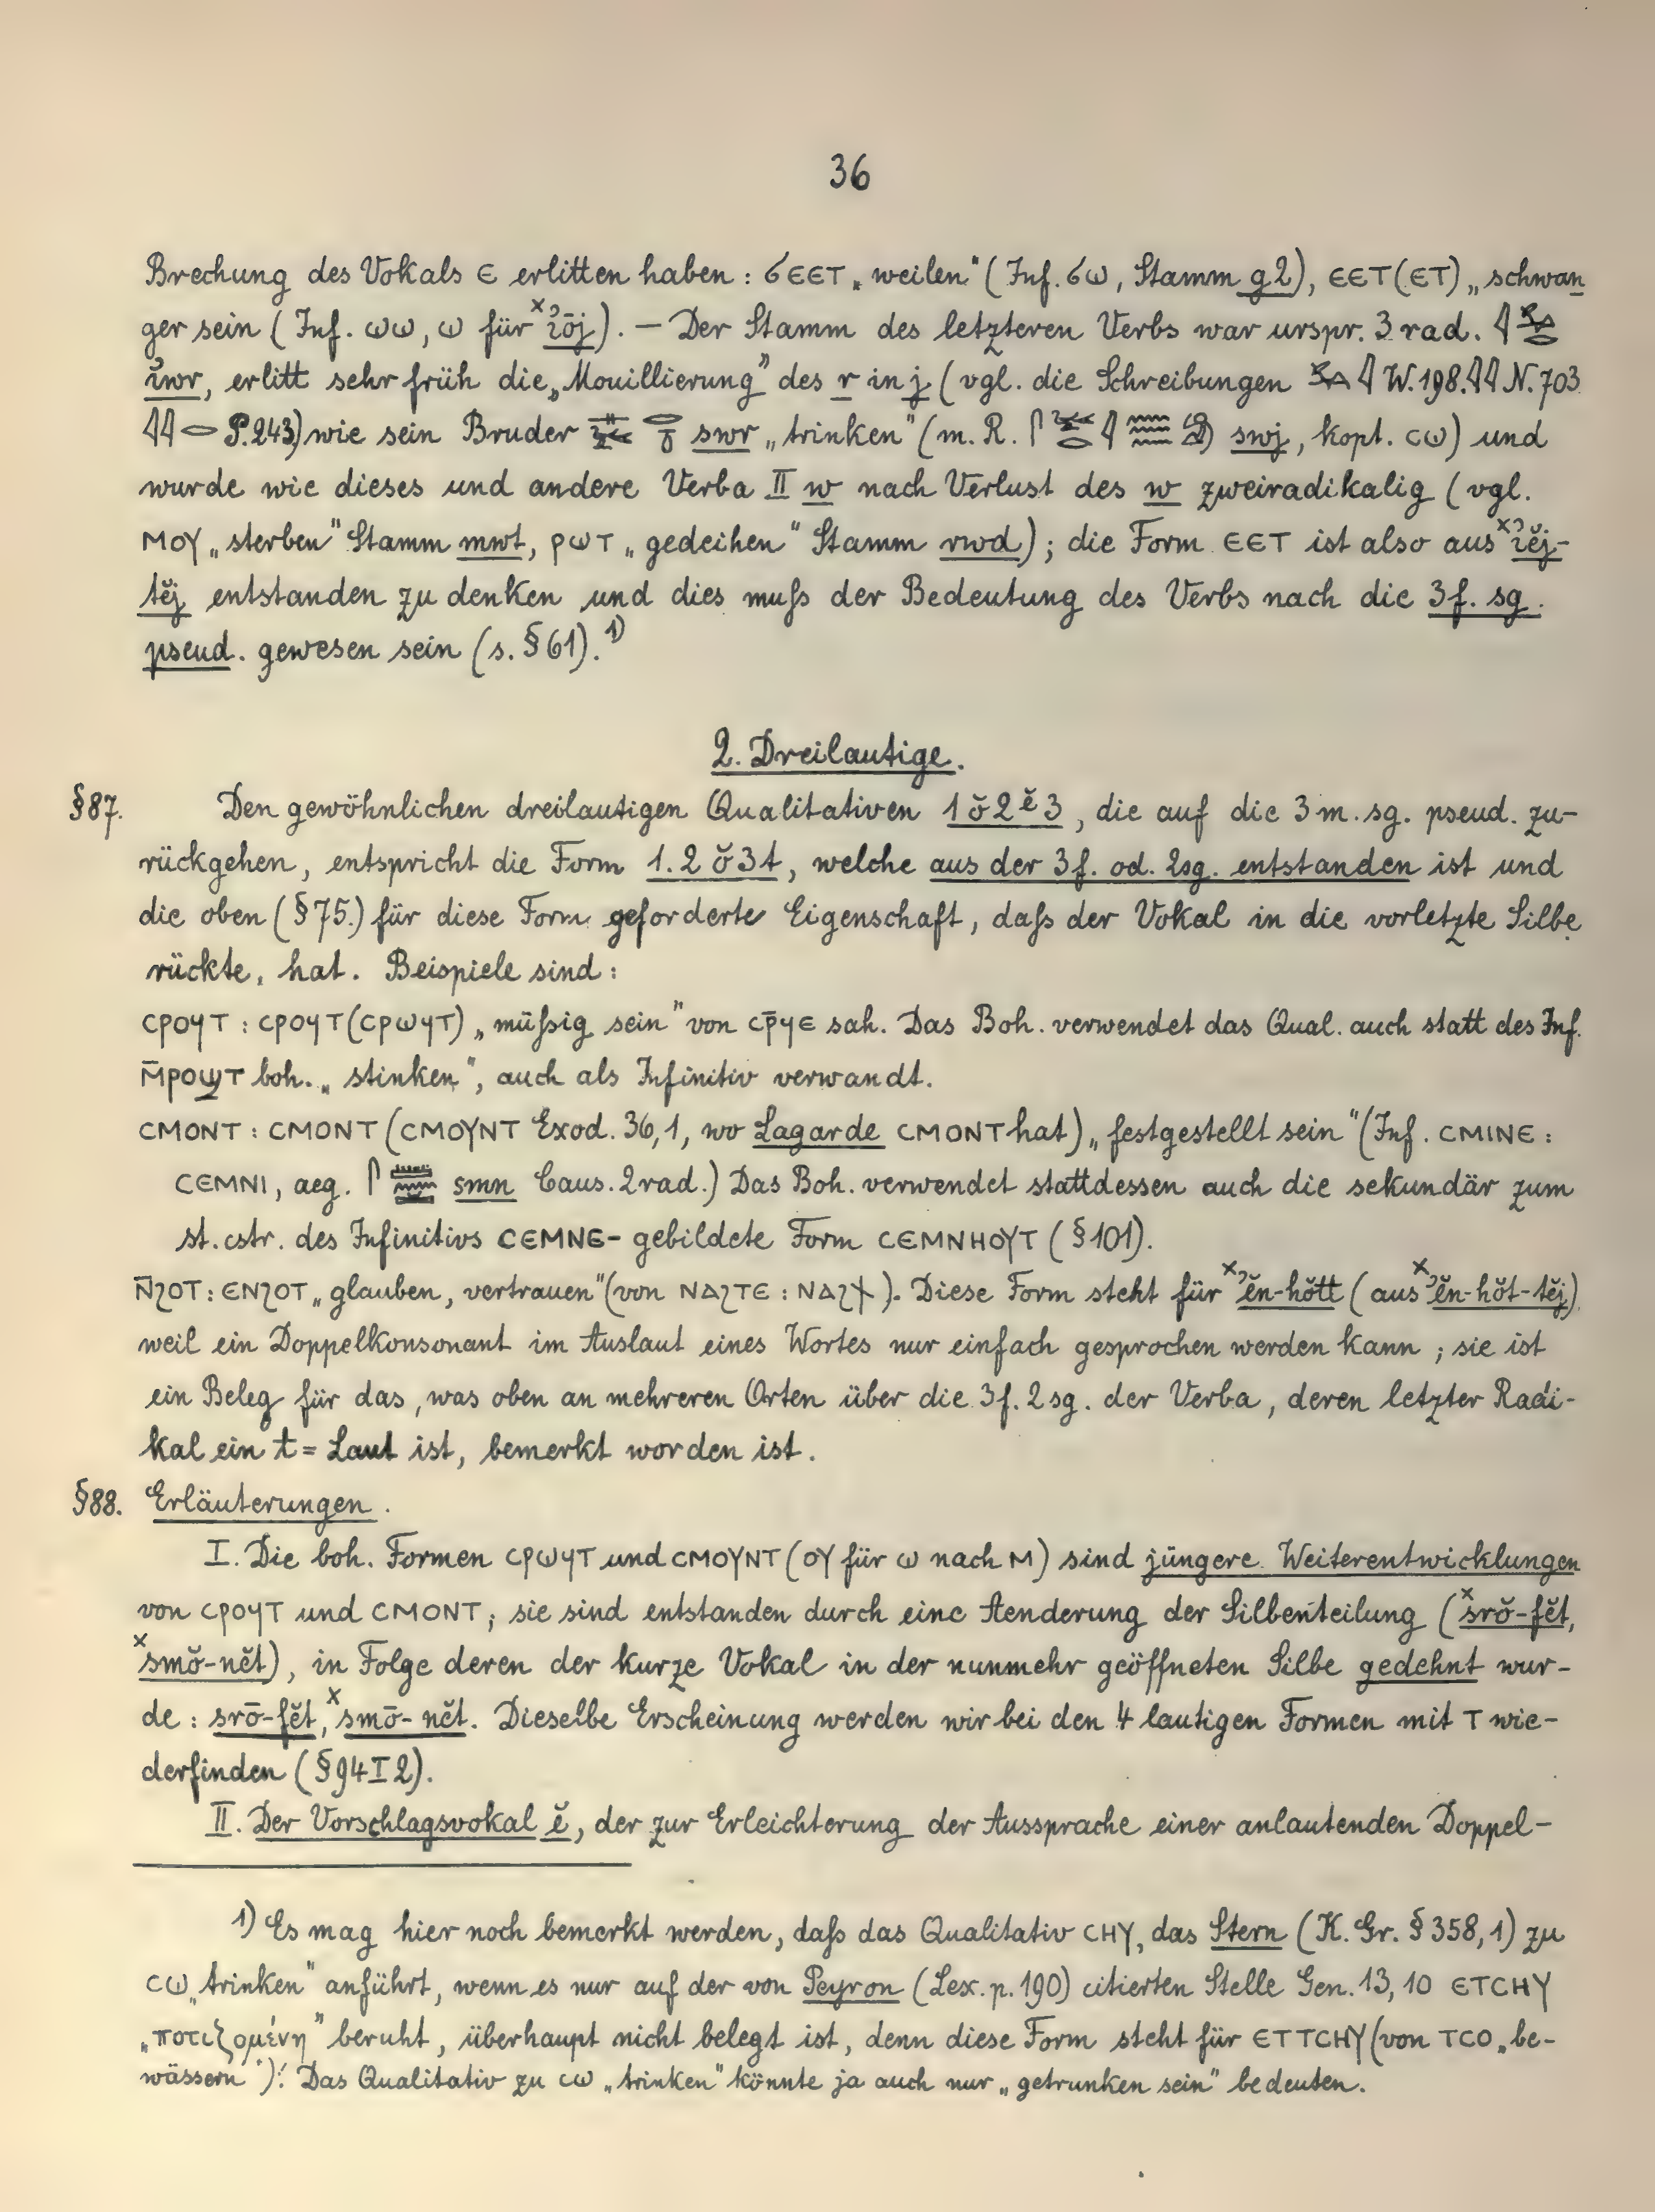 36
Brechung des Vokals ⲉ erlitten haben: ϭⲉⲉⲧ „weilen" (Inf. ϭⲱ, Stamm g2), ⲉⲉⲧ(ⲉⲧ) „schwan
ger sein (Inf. ⲱⲱ, ⲱ für ˣꞽōj). – Der Stamm des letzteren Verbs war urspr. 3 rad.
ꞽwr, erlitt sehr früh die „Mouillierung" des r in j (vgl. die Schreibungen W. 198. 𓇋𓇋 N. 703
𓇋𓇋𓂋 P. 243) wie sein Bruder swr „trinken" (m. R. swj, kopt. ⲥⲱ) und
wurde wie dieses und andere Verba II w nach Verlust des w zweiradikalig (vgl.
ⲙⲟⲩ „sterben" Stamm mwt, ⲣⲱⲧ „gedeihen" Stamm rwd); die Form ⲉⲉⲧ ist also aus ˣꞽĕj-
tĕj entstanden zu denken und dies muſs der Bedeutung des Verbs nach die 3f. sg.
pseud. gewesen sein (s. §61).¹⁾
2. Dreilautige.
§87. Den gewöhnlichen dreilautigen Qualitativen 1 ŏ 2 ĕ 3, die auf die 3 m. sg. pseud. zu-
rückgehen, entspricht die Form 1. 2 ŏ 3 t, welche aus der 3f. od. 2sg. entstanden ist und
die oben (§75.) für diese Form geforderte Eigenschaft, daſs der Vokal in die vorletzte Silbe
rückte, hat. Beispiele sind:
ⲥⲣⲟϥⲧ : ⲥⲣⲟϥⲧ(ⲥⲣⲱϥⲧ) „müſsig sein" von ⲥⲣ̄ϥⲉ sah. Das Boh. verwendet das Qual. auch statt des Inf.
ⲙ̄ⲣⲟϣⲧ boh. „stinken", auch als Infinitiv verwandt.
ⲥⲙⲟⲛⲧ : ⲥⲙⲟⲛⲧ (ⲥⲙⲟⲩⲛⲧ Exod. 36,1, wo Lagarde ⲥⲙⲟⲛⲧ hat) „festgestellt sein" (Inf. ⲥⲙⲓⲛⲉ :
ⲥⲉⲙⲛⲓ, aeg. smn Caus. 2rad.) Das Boh. verwendet stattdessen auch die sekundär zum
st. cstr. des Infinitivs ⲥⲉⲙⲛⲉ- gebildete Form ⲥⲉⲙⲛⲏⲟⲩⲧ (§101).
ⲛ̄ϩⲟⲧ : ⲉⲛϩⲟⲧ „glauben, vertrauen" (von ⲛⲁϩⲧⲉ : ⲛⲁϩϯ). Diese Form steht für ˣʾĕn-hŏtt (aus ˣʾĕn-hŏt-tĕj)
weil ein Doppelkonsonant im Auslaut eines Wortes nur einfach gesprochen werden kann; sie ist
ein Beleg für das, was oben an mehreren Orten über die 3f. 2sg. der Verba, deren letzter Radi-
kal ein t = Laut ist, bemerkt worden ist.
§88. Erläuterungen.
I. Die boh. Formen ⲥⲣⲱϥⲧ und ⲥⲙⲟⲩⲛⲧ (ⲟⲩ für ⲱ nach ⲙ) sind jüngere Weiterentwicklungen
von ⲥⲣⲟϥⲧ und ⲥⲙⲟⲛⲧ; sie sind entstanden durch eine Aenderung der Silbenteilung (ˣsrŏ-fĕt,
ˣsmŏ-nĕt), in Folge deren der kurze Vokal in der nunmehr geöffneten Silbe gedehnt wur-
de: srō-fĕt, ˣsmō-nĕt. Dieselbe Erscheinung werden wir bei den 4 lautigen Formen mit ⲧ wie-
derfinden (§94 I 2).
II. Der Vorschlagsvokal ĕ, der zur Erleichterung der Aussprache einer anlautenden Doppel-
1) Es mag hier noch bemerkt werden, daſs das Qualitativ ⲥⲏⲩ, das Stern (K. Gr. §358,1) zu
ⲥⲱ „trinken" anführt, wenn es nur auf der von Peyron (Lex. p. 190) citierten Stelle Gen. 13, 10 ⲉⲧⲥⲏⲩ
„ποτιζομένη" beruht, überhaupt nicht belegt ist, denn diese Form steht für ⲉⲧⲧⲥⲏⲩ (von ⲧⲥⲟ „be-
wässern"). Das Qualitativ zu ⲥⲱ „trinken" könnte ja auch nur „getrunken sein" bedeuten.